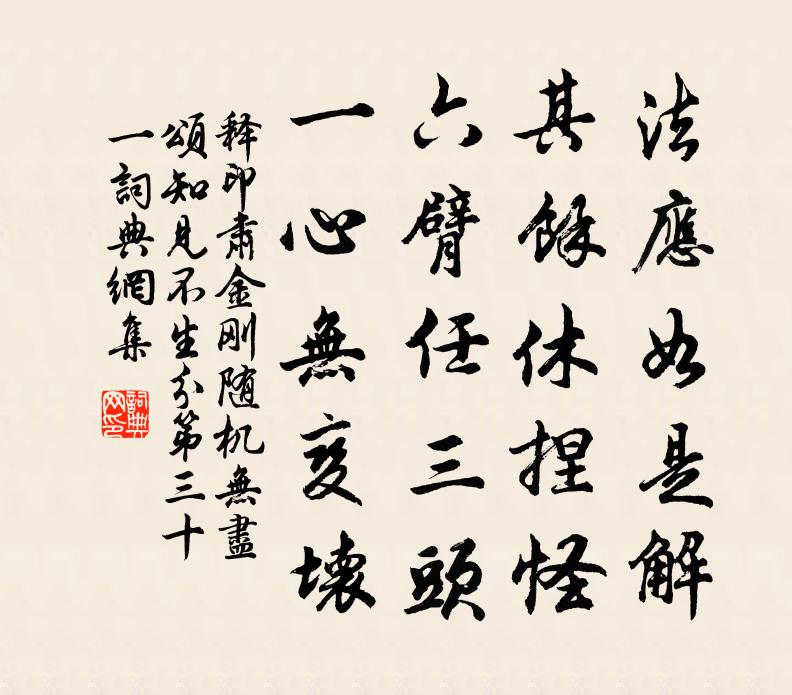 法應如是解
其餘休捏怪
六臂任三頭
一心無変壞
释印肃金刚随机無盡
頌知見不生分第三十
一詞典網集
詞典
网印